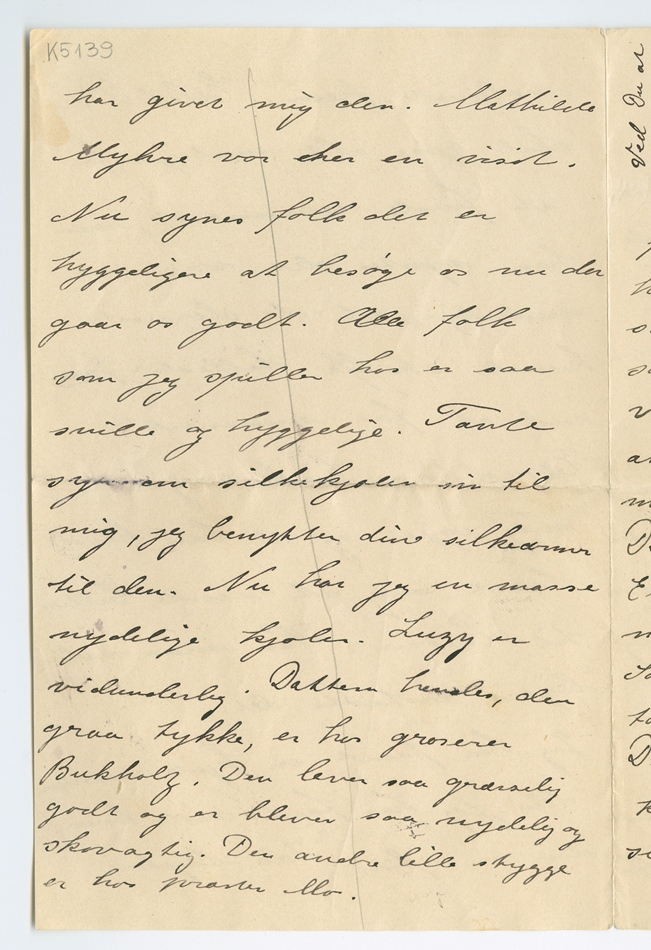 K5139
har givet mig den. Mathilde
Myhre var her en visit.
Nu synes folk det er
hyggeligere at besøge os nu der
gaar os godt. Alle folk
som jeg spiller hos er saa
snille og hyggelige. Tante
syr om silkekjolen min til
mig, jeg benytter dine silkeærmer
til den. Nu har jeg en masse
nydelige kjoler. Luzy er
vidunderlig. Dattern hendes, den
graa tykke, er hos groserer
Bukholz. Den lever saa græsselig
godt og er blevet saa nydelig og
skovagtig. Den andre lille stygge
er hos Mo.
Ved Du at